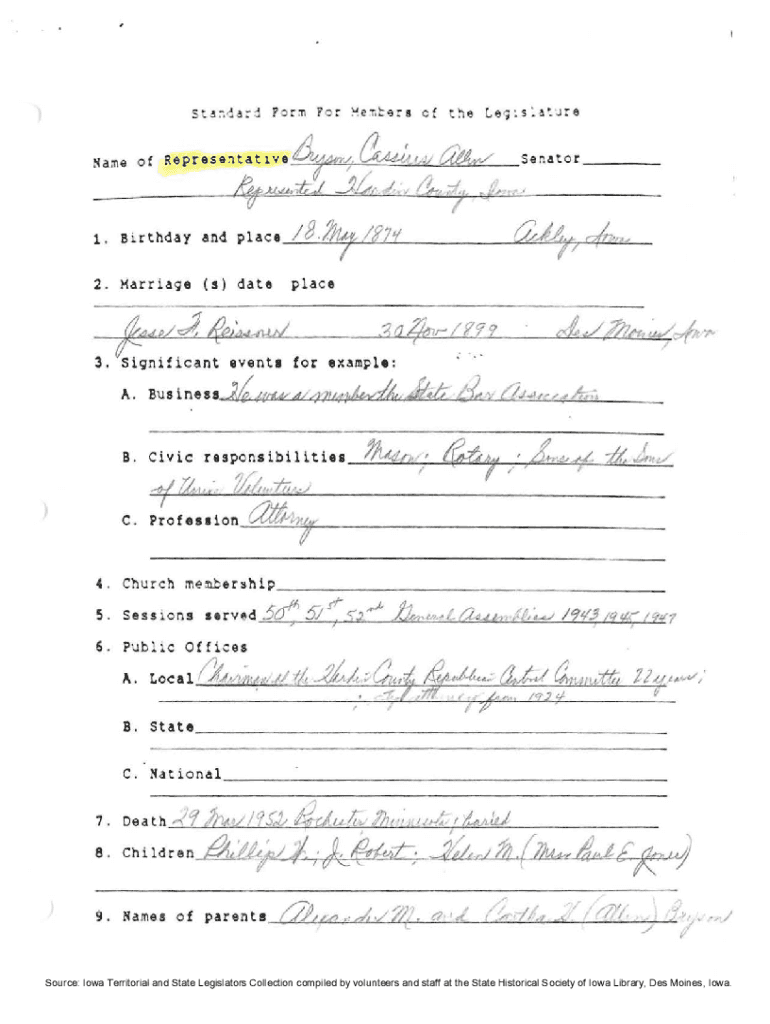 Standard Form For Members of the Legislature
Name of Representative Bryson, Cassius Allen Senator
Represented Hardin County, Iowa
1. Birthday and place 18 May 1874 Ackley, Iowa
2. Marriage (s) date place
Jesse F. Reissner 30 Nov 1899 Des Moines, Iowa
3. Significant events for example:
A. Business He was a member the State Bar Association
B. Civic responsibilities Mason; Rotary; Sons of the Sons
of Union Volunteers
C. Profession Attorney
4. Church membership
5. Sessions served 50th, 51st, 52nd General Assemblies 1943, 1945, 1947
6. Public Offices
A. Local Chairman of the Hardin County Republican Central Committee 22 years;
; city attorney from 1924
B. State
C. National
7. Death 29 Mar 1952 Rochester Minnesota; buried
8. Children Phillip H.; J. Robert; Helen M. (Mrs Paul E. Jones)
9. Names of parents Alexander M. and (Allen) Bryson
Source: Iowa Territorial and State Legislators Collection compiled by volunteers and staff at the State Historical Society of Iowa Library, Des Moines, Iowa.